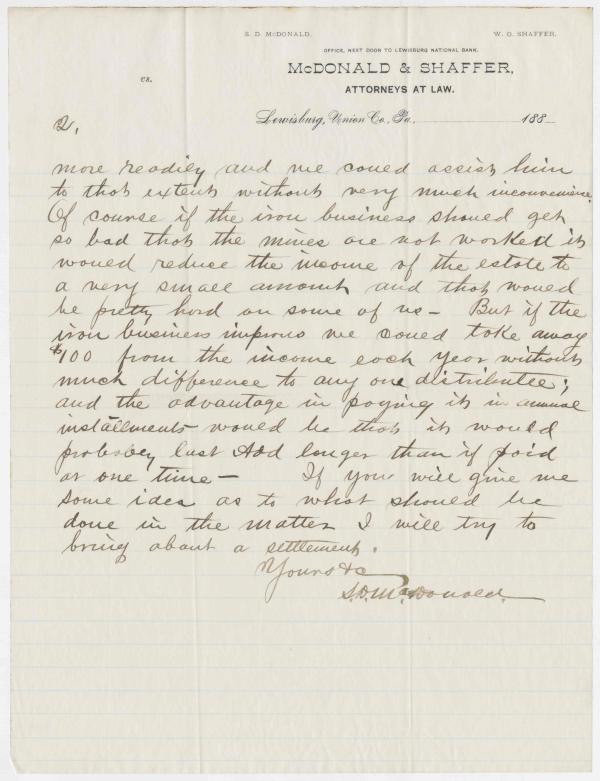 S. D. McDONALD. W. O. SHAFFER,
OFFICE, NEXT DOOR TO LEWISBURG NATIONAL BANK.
McDONALD & SHAFFER,
vs.
ATTORNEYS AT LAW.
Lewisburg, Union Co., Pa. 188
2,
more readily and we could assist him
to that extent without very much inconvenience.
Of course if the iron business should get
so bad that the mines are not worked it
would reduce the income of the estate to
a very small amount and that would
be pretty hard on some of us — But if the
iron business improves we could take away
$100 from the income each year without
much difference to any one distributee;
and the advantage in paying it in annual
installments would be that it would
probably last longer than if paid
at one time — If you will give me
some idea as to what should be
done in the matter I will try to
bring about a settlement.
Yours &c
S. D. McDonald.